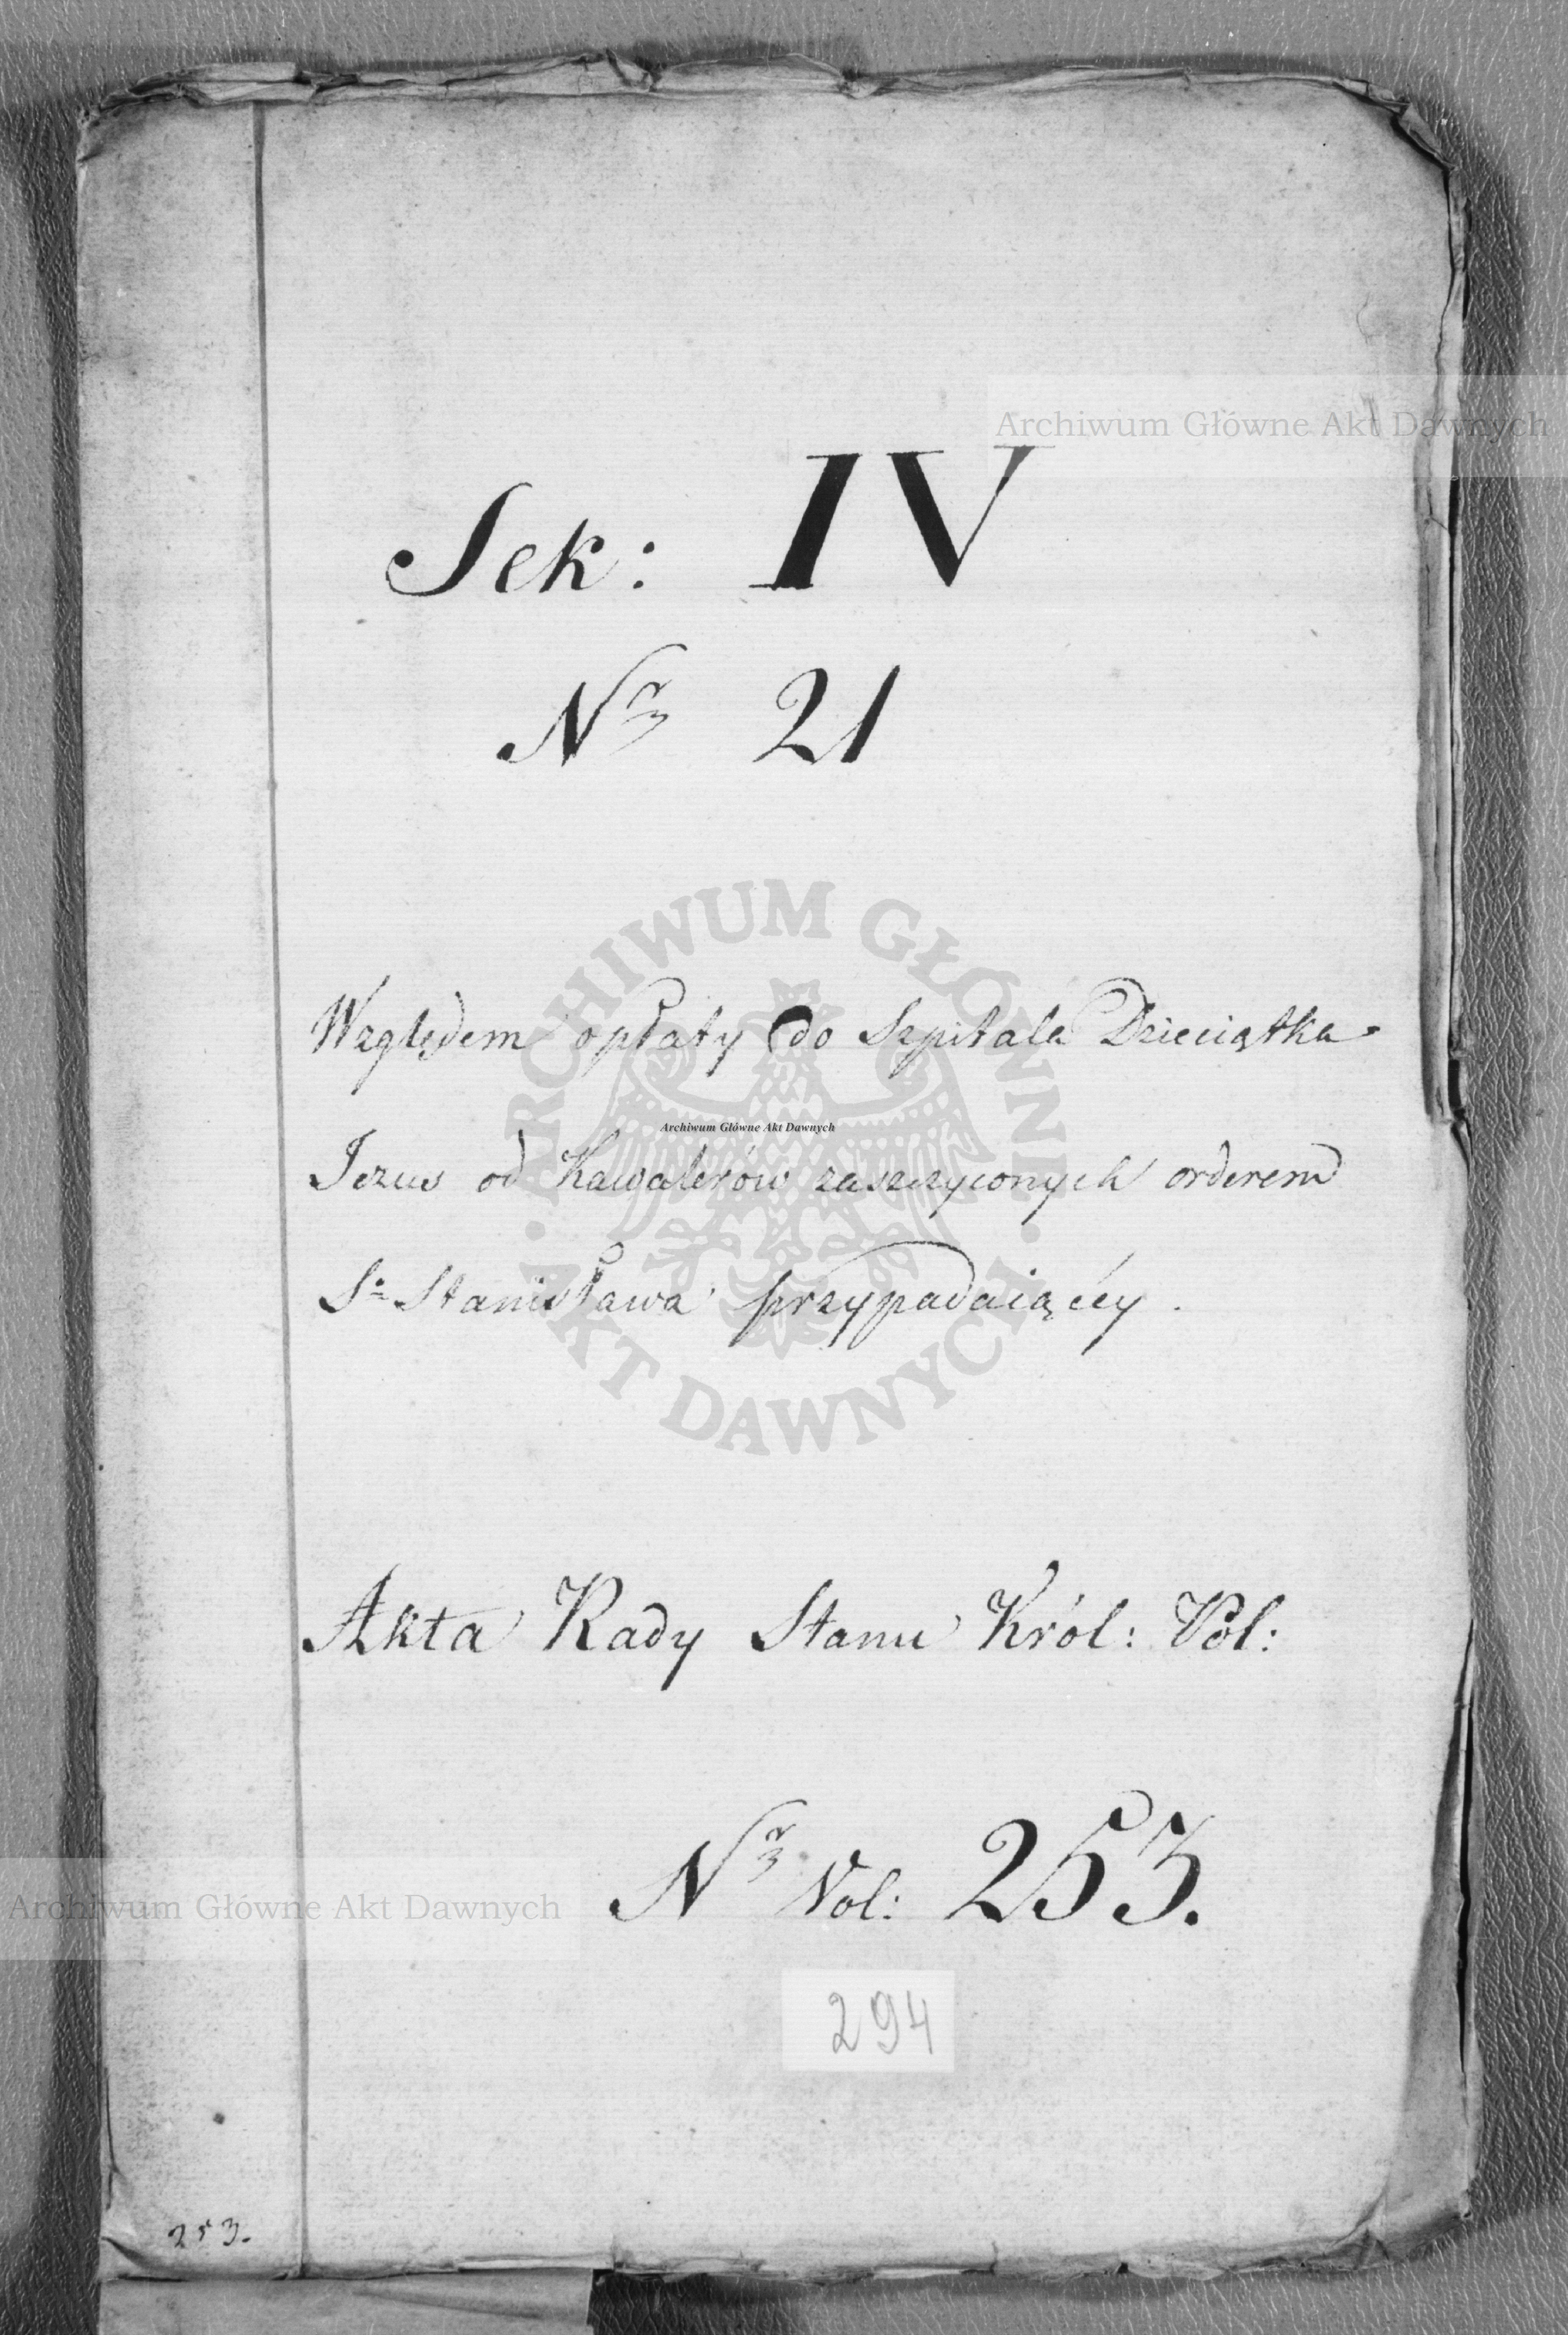 Archiwum Główne Akt Dawnych
Sek: IV
Nr 21
ARCHIWUM GŁÓWNE AKT DAWNYCH
Względem opłaty do Szpitala Dzieciątka
Archiwum Główne Akt Dawnych
Jezus od Kawalerów zaszczyconych orderem
Sgo Stanisława przypadaiącéy.
Akta Rady Stanu Król: Pol:
Nr Vol: 253.
Archiwum Główne Akt Dawnych
294
253.